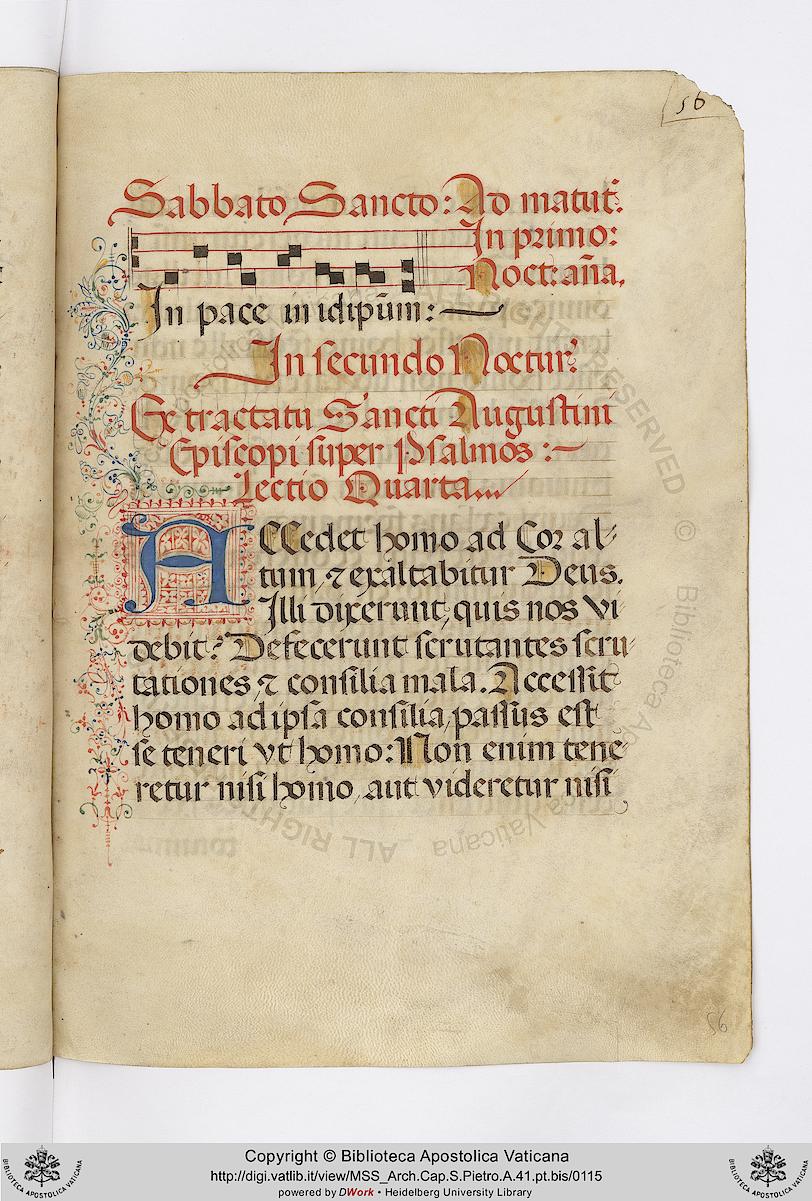 56
Sabbato Sancto: Ad matut̃:
In primo:
Noct: añа.
In pace in idip̃um:
In secundo Noctur̃:
Ex tractatu Sancti Augustini
Episcopi super Psalmos:
Lectio Quarta
ACCedet homo ad Cor al-
tum, ⁊ exaltabitur Deus.
Illi dixerunt, quis nos vi-
debit? Defecerunt scrutantes scru-
tationes, ⁊ consilia mala. Accessit
homo ad ipsa consilia, passus est
se teneri vt homo: Non enim tene-
retur nisi homo, aut videretur nisi
56
ALL RIGHTS RESERVED © Biblioteca Apostolica Vaticana
Copyright © Biblioteca Apostolica Vaticana
http://digi.vatlib.it/view/MSS_Arch.Cap.S.Pietro.A.41.pt.bis/0115
powered by DWork • Heidelberg University Library
BIBLIOTECA APOSTOLICA VATICANA
BIBLIOTECA APOSTOLICA VATICANA